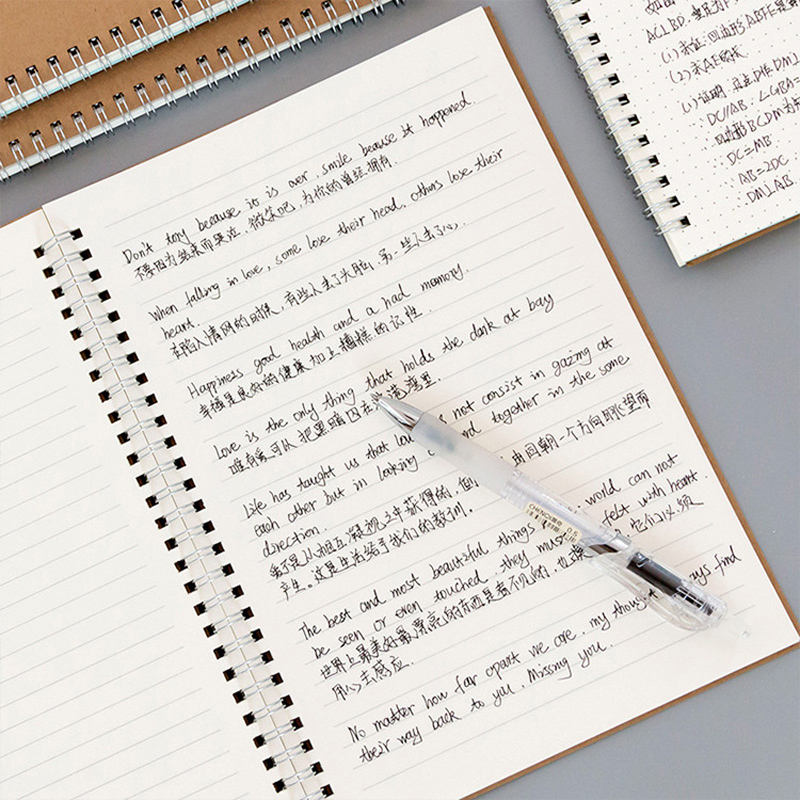 Don't tory because it is over, smile because it happened.
不要因为结束而哭泣，微笑吧，为你的曾经拥有.
When falling in love, some lose their head, others lose their
heart.
在陷入情网的时候，有些人丢了大脑，另一些人丢了心.
Happiness good health and a had mamory.
幸福是良好的健康加上糟糕的记性.
Love is the only thing that holds the dank at bay
唯有爱可以把黑暗囚在港湾里.
Life has taught us that not consist in gazing at
each other but in looking together in the same
direction.
爱不是从相互凝视之中获得的, 由同朝一个方向眺望而
产生。这是生活给予我们的教训。
The best and most beautiful things world can not
be seen or even touched, they must felt with heart.
世界上最美好最漂亮的东西是看不见的, 也 它们必须
用心去感应.
No matter how far apart we are, my thought find
their way back to you. Missing you.
CHENQI 0.5
AC⊥BD,
(1)求证:四边形ABFE是
(2)求AE的长
(1)证明:
DC//AB.
四边形BCDM为
DC=MB
AB=2DC
DM⊥AB.